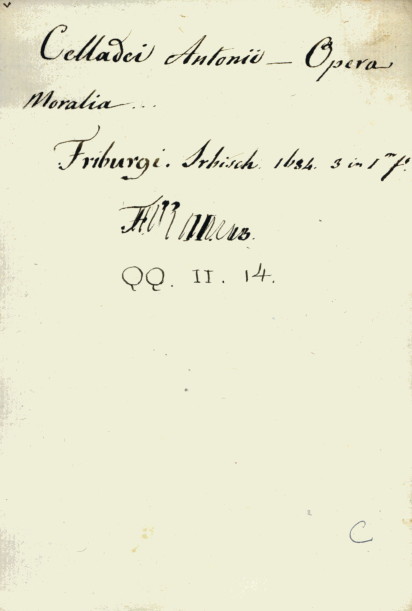 Celladei Antonii — Opera
Moralia ...
Friburgi. Irbisch. 1684. 3 in 1 f.
QQ. II. 14.
C